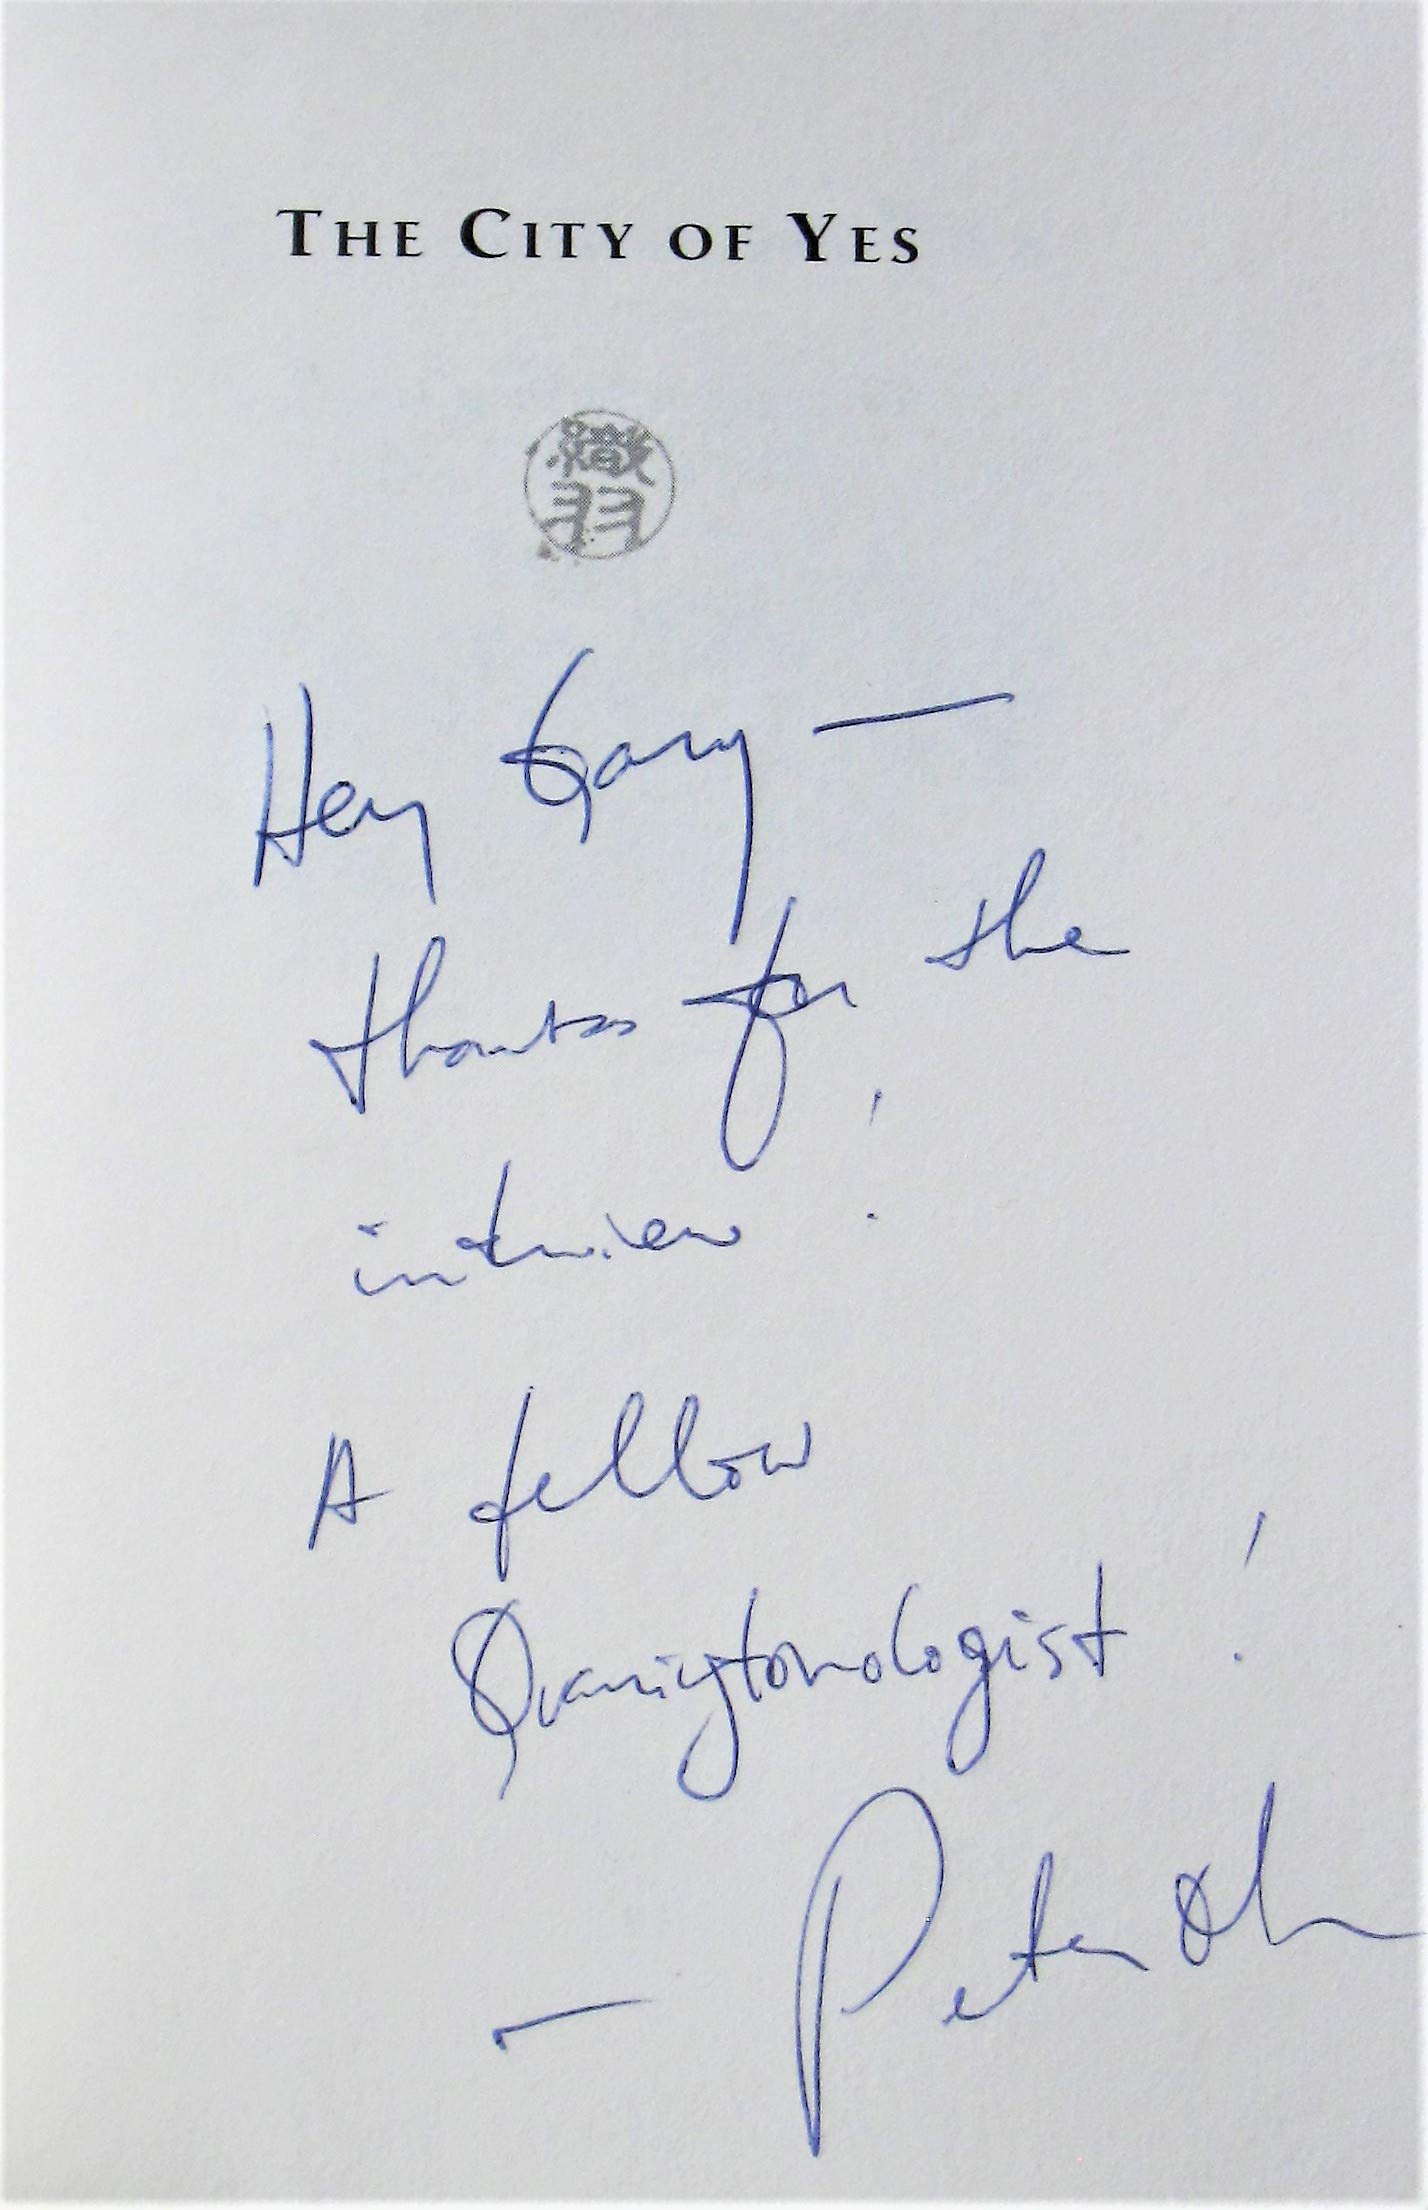 THE CITY OF YES
織
羽
Hey Gary —
thanks for the
interview!
A fellow
!
— Peter